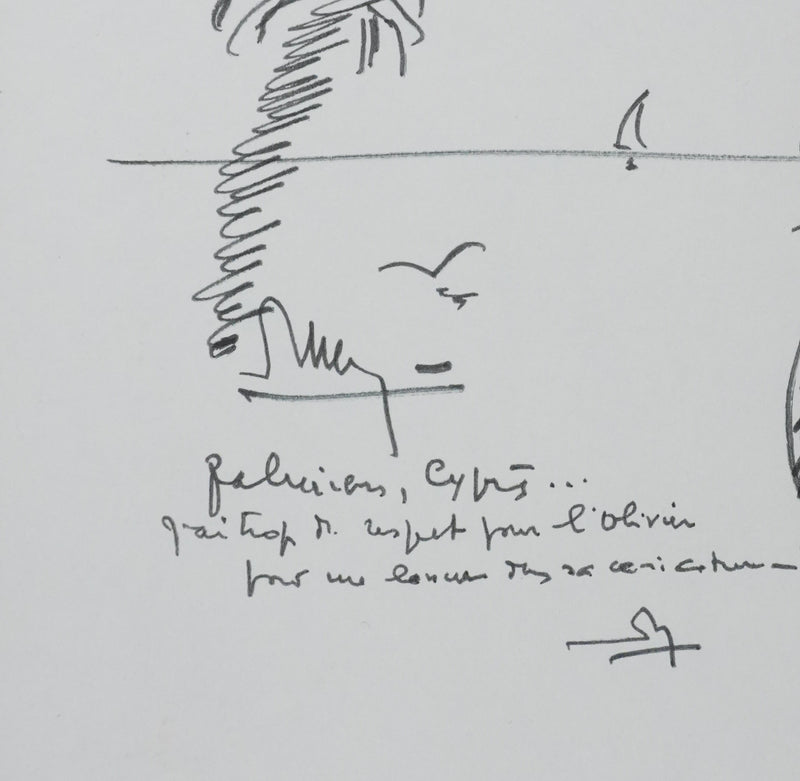 Palmiers, Cyprès...
j'ai trop de respect pour l'olivier
pour me lancer dans sa caricature